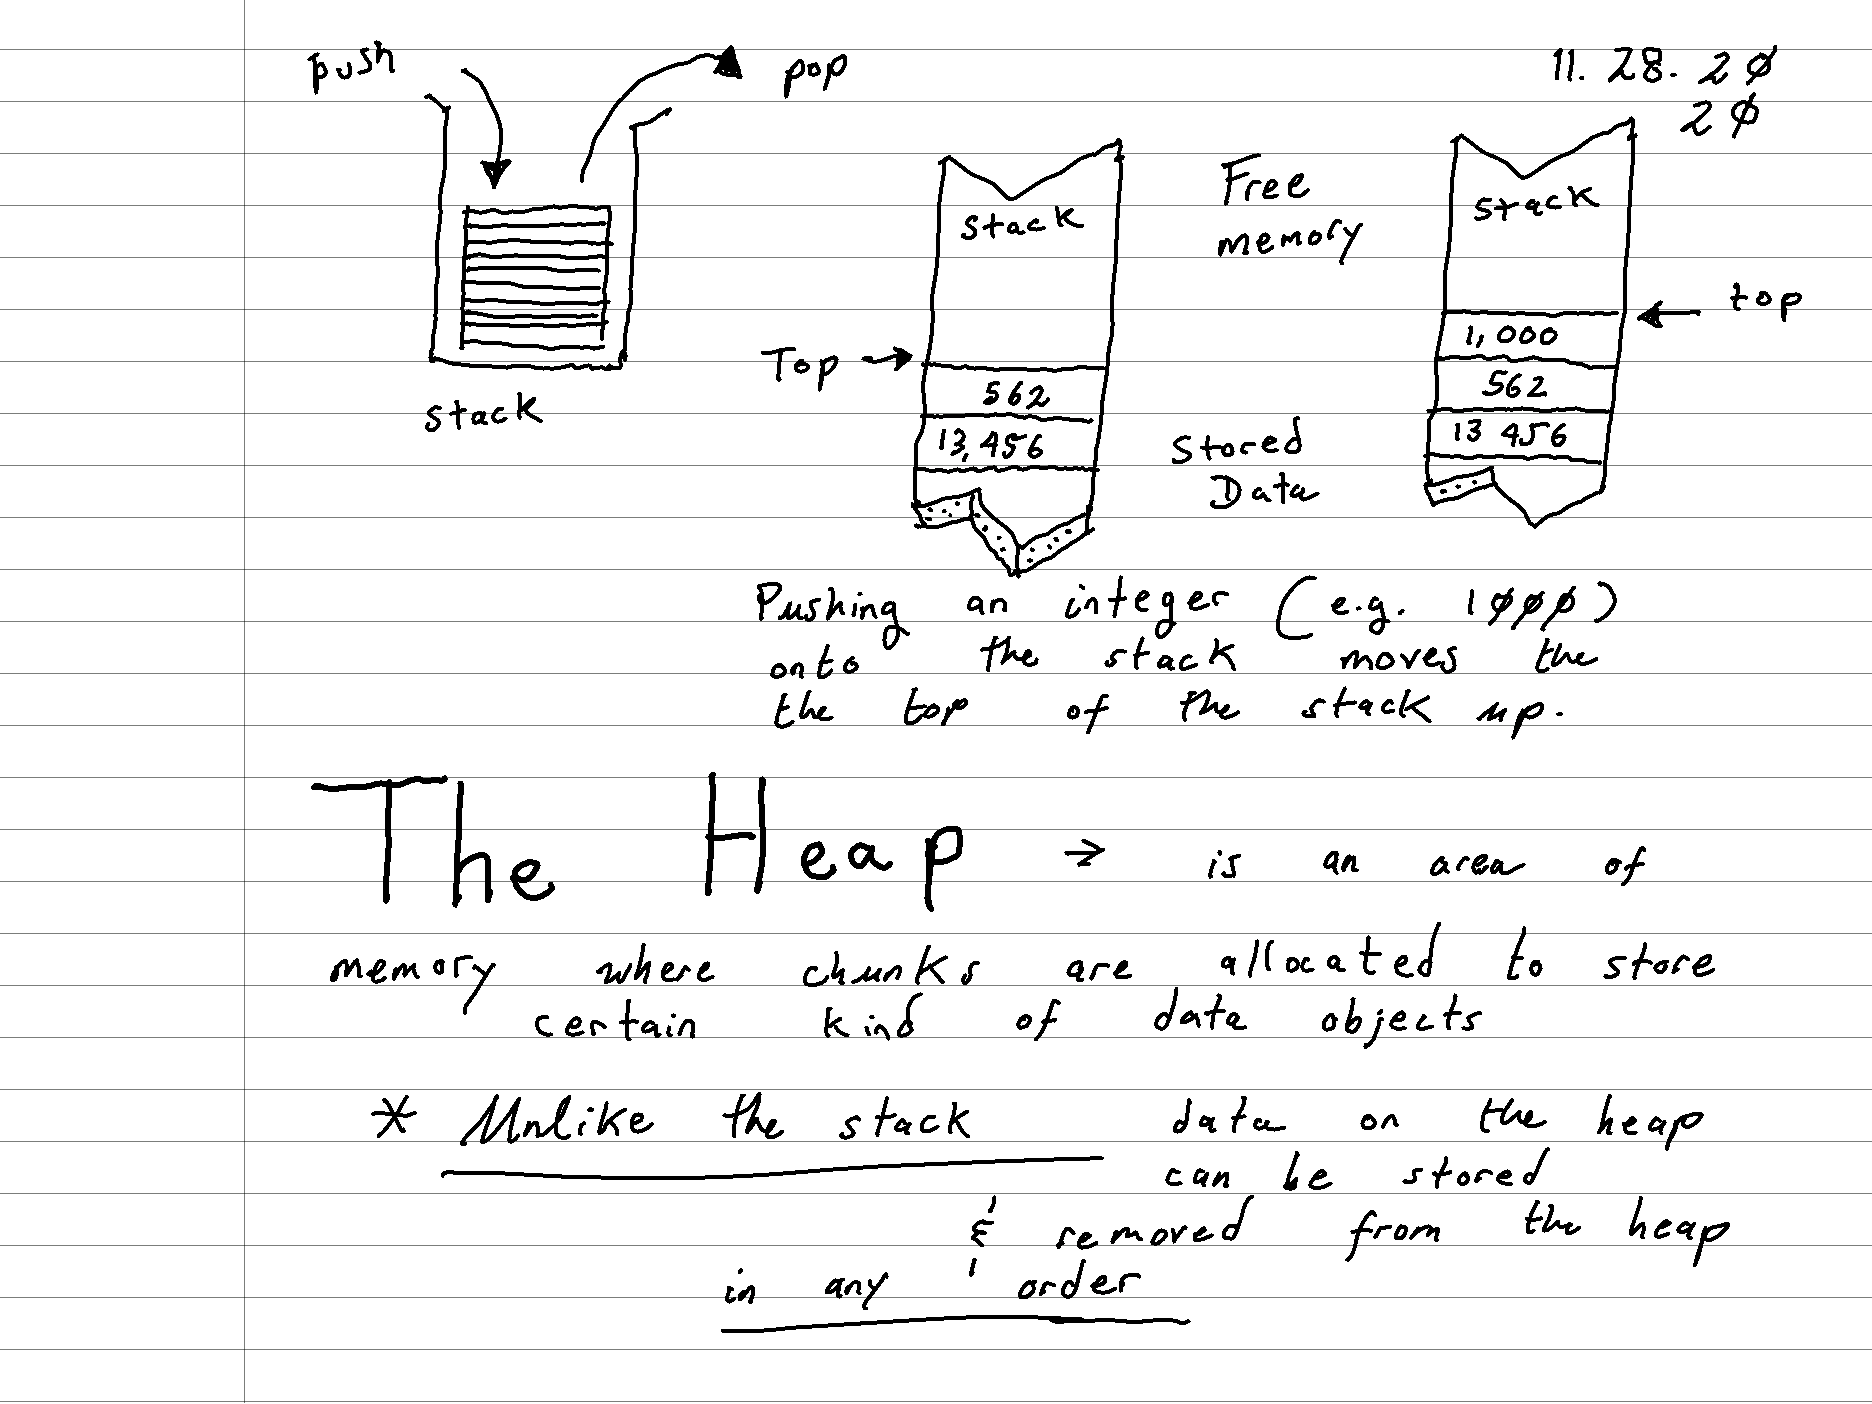 push
pop
11. 28. 2∅
2∅
stack
Top →
stack
562
13,456
Free
memory
Stored
Data
stack
← top
1,000
562
13 456
Pushing an integer (e.g. 1∅∅∅)
onto the stack moves the
the top of the stack up.
The Heap → is an area of
memory where chunks are allocated to store
certain kind of data objects
* Unlike the stack data on the heap
can be stored
& removed from the heap
in any order